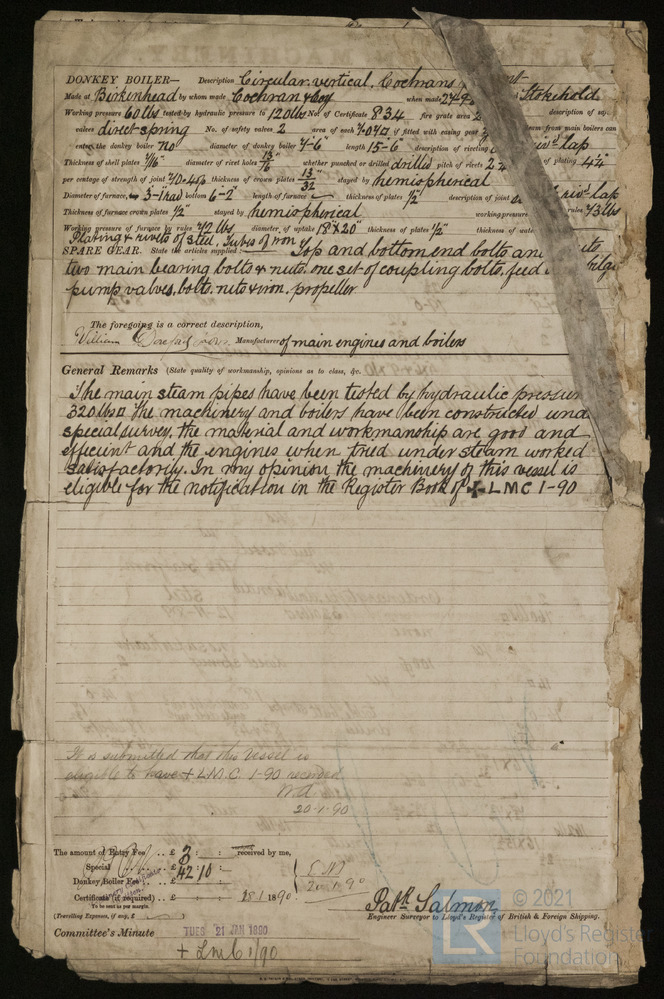 DONKEY BOILER— Description Circular. vertical. Cochrans
Made at Birkenhead by whom made Cochran & Coy when made Stokehold
Working pressure 60 lbs tested by hydraulic pressure to 120 lbs No. of Certificate 834 fire grate area description of
valves direct spring No. of safety valves 2 area of each 7.07□ if fitted with easing gear from main boilers can
enter the donkey boiler no diameter of donkey boiler 7'-6" length 15'-6" description of riveting riv'd lap
Thickness of shell plates 7/16" diameter of rivet holes 13/16" whether punched or drilled drilled pitch of rivets of plating 4¼"
per centage of strength of joint 70.45% thickness of crown plates 13/32 stayed by hemispherical
Diameter of furnace, 3"-7 rad bottom 6-2" length of furnace thickness of plates ½" description of joint riv'd lap
Thickness of furnace crown plates ½" stayed by hemispherical working pressure rules 73 lbs
Working pressure of furnace by rules 72 lbs diameter, of uptake 18" x 20" thickness of plates ½" thickness of
Plating & rivets of steel, Tubes of iron
SPARE GEAR. State the articles supplied:— Top and bottom end bolts and
two main bearing bolts & nuts. one set of coupling bolts, feed bilge
pump valves, bolts, nuts & iron. propeller
The foregoing is a correct description,
William Manufacturer of main engines and boilers
General Remarks (State quality of workmanship, opinions as to class, &c.
The main steam pipes have been tested by hydraulic pressure
320 lbs□ The machinery and boilers have been constructed und
special survey, the material and workmanship are good and
efficient and the engines when tried under steam worked
satisfactorily. In my opinion the machinery of this vessel is
eligible for the notification in the Register Book of ✠ LMC 1-90
It is submitted that this Vessel is
eligible to have + L.M.C. 1-90 recorded
20-1-90
The amount of Entry Fee .. £ 3 : : received by me,
Special .. £ 42 : 10 :
Donkey Boiler Fee .. £ : :
Certificate (if required) .. £ : : 18.1 1890
To be sent as per margin.
(Travelling Expenses, if any, £ )
20.1.90
Patk. Salmon
Engineer Surveyor to Lloyd's Register of British & Foreign Shipping.
Committee's Minute TUES 21 JAN 1890
+ Lmc 1/90
© 2021
Lloyd's Register
Foundation